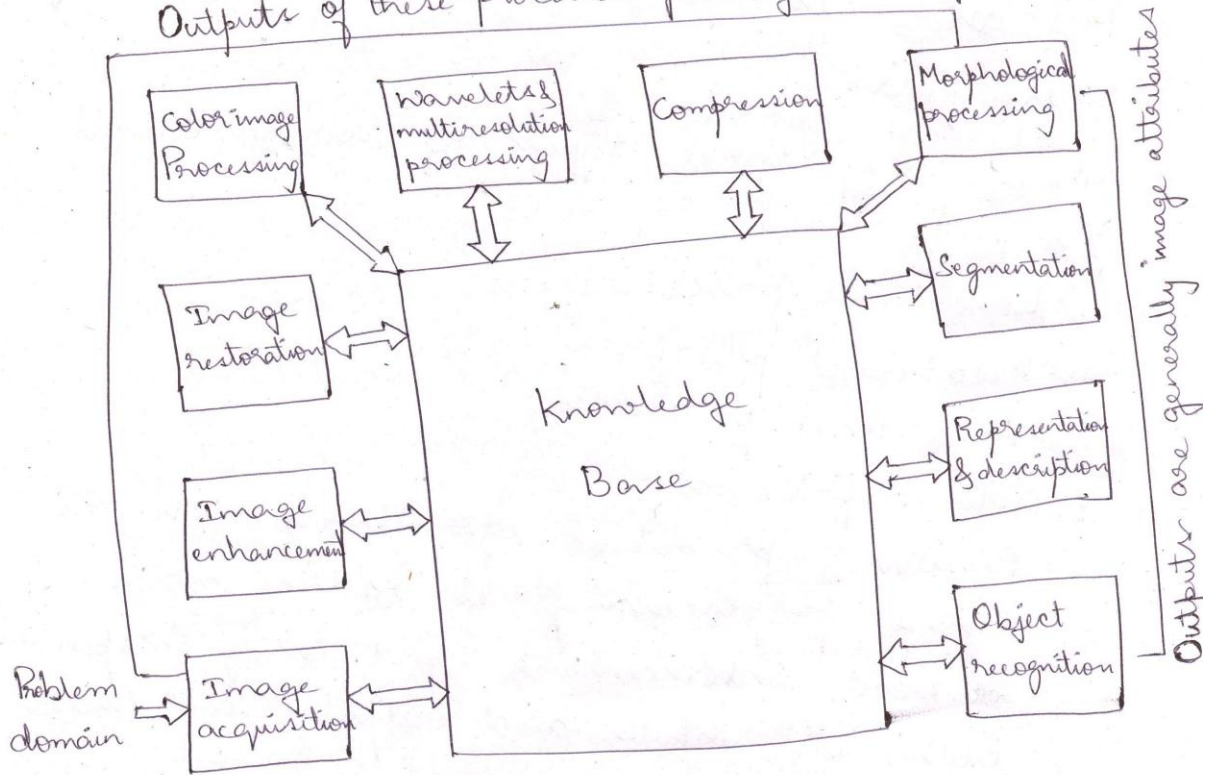 Outputs of these
Color image
Processing
Wavelets &
multiresolution
processing
Compression
Morphological
processing
Image
restoration
Segmentation
Knowledge
Base
Representation
& description
Image
enhancement
Object
recognition
Problem
domain
Image
acquisition
Outputs are generally image attributes